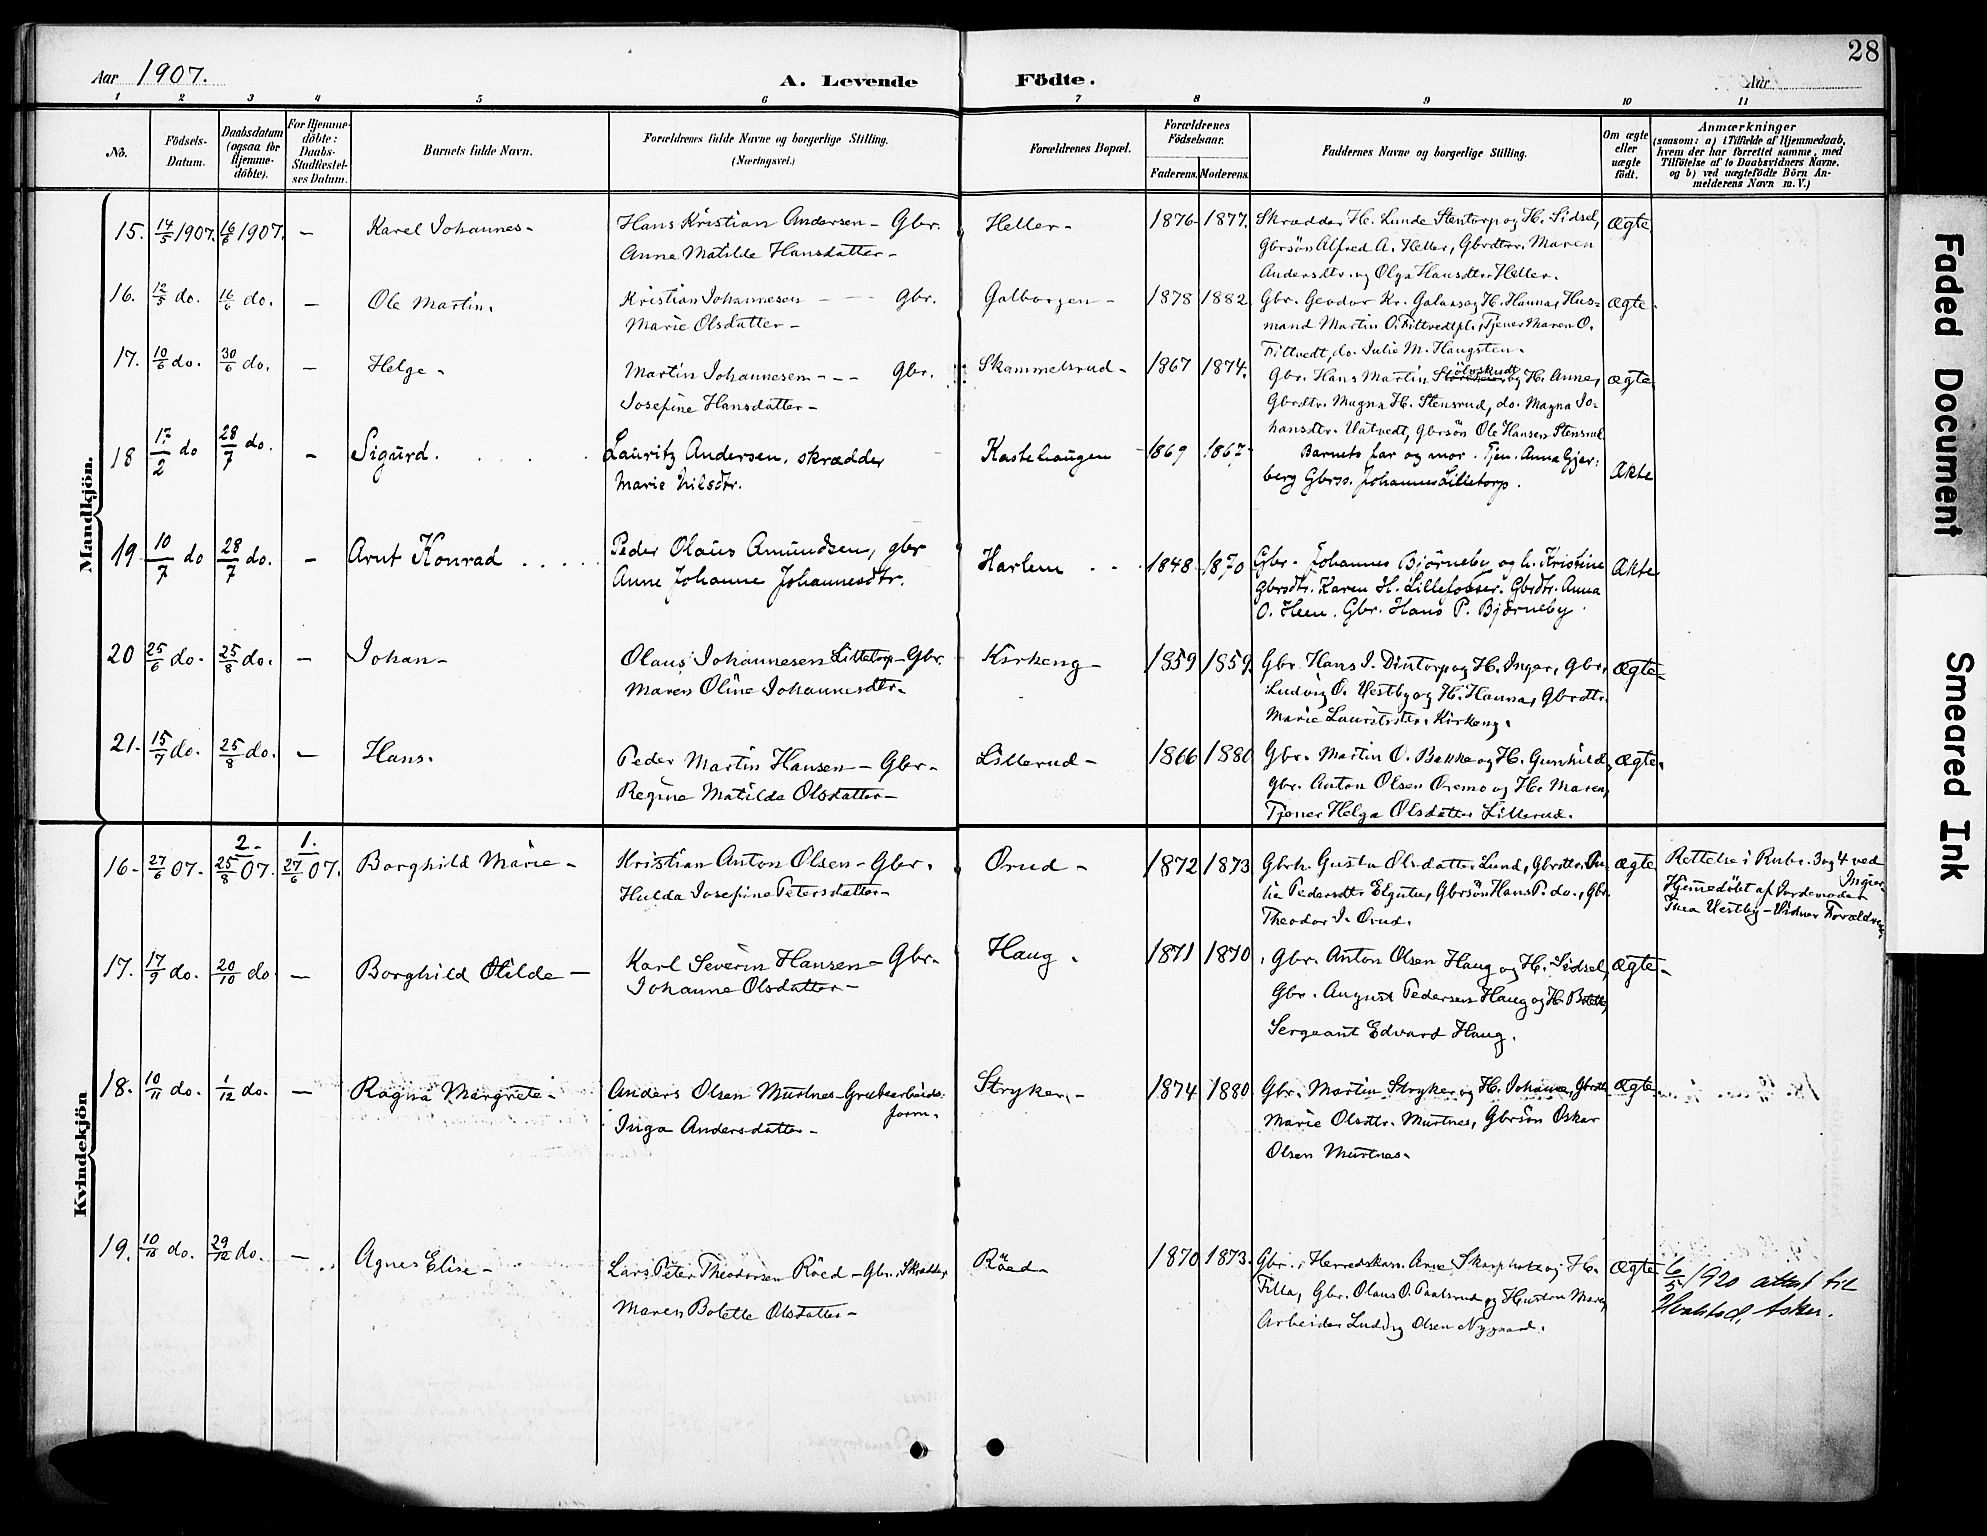 28
Aar 1907.
A. Levende Födte.
Aar
1 2 3 4 5 6 7 8 9 10 11
No.
Födsels-
Datum.
Daabsdatum
(ogsaa for
Hjemme-
döbte).
For Hjemme-
döbte:
Daabs-
Stadfæstel-
ses Datum.
Barnets fulde Navn.
Forældrenes fulde Navne og borgerlige Stilling.
(Næringsvei.)
Forældrenes Bopæl.
Forældrenes
Födselsaar.
Faderens. Moderens.
Faddernes Navne og borgerlige Stilling.
Om ægte
eller
uægte
födt.
Anmærkninger
(saasom: a) i Tilfælde af Hjemmedaab,
hvem der har forrettet samme, med
Tilföielse af to Daabsvidners Navne,
og b) ved uægtefödte Börn An-
melderens Navn m. V.)
Mandkjön.
15. 14/5 1907. 16/6 1907. — Karel Johannes-
Hans Kristian Andersen- Gbr.
Anne Matilde Hansdatter-
Heller- 1876- 1877.
Skrædder H. Lunde Stentorp og H. Sidsel,
Gbrsön Alfred A. Heller, Gbrdtr. Maren
Andersdtr. og Olga Hansdtr. Heller.
Ægte
16. 12/5 do. 16/6 do. — Ole Martin.
Kristian Johannesen - - - Gbr.
Marie Olsdatter-
1878 1882
Gbr. Hanna, Hus-
mand Martin O. Fittvedtpl., Tjener Maren O.
Fittvedt, do. Julie M. Haugsten.
Ægte-
17. 10/6 do. 30/6 do. — Helge-
Martin Johannesen - - - Gbr.
Josefine Hansdatter-
Skammelsrud- 1867 1874.
Gbr. Hans Martin og H. Anne,
Gbrdtr. Magna H. Stensrud, do. Magna Jo-
hansdtr. Uatvedt, Gbrsön Ole Hansen Stensrud
Ægte
18 17/2 do 28/7 do. - Sigurd.
Lauritz Andersen, skrædder
Marie Nilsdtr.
Kastehaugen 1869 1867
Barnets far og mor. Tjen. Anna Gjer-
berg Gbrss. Johannes Lilletorp.
Ækte
19 10/7 do 28/7 do. - Arnt Konrad
Peder Olaus Amundsen, gbr
Anne Johanne Johannesdtr.
Harlem 1848 1870
Gbr. Johannes Björneby og h. Kristine
gbrsdtr. Karen H. Gbrdtr. Anna
O. Heen. Gbr. Hans P. Björneby.
Ækte
20 25/6 do. 25/8 do. — Johan-
Olaus Johannesen Lilletorp- Gbr.
Maren Oline Johannesdtr.
Kirkeng- 1859 1859.
Gbr. Hans J. Dintorp og H. Inger, Gbr.
Ludvig O. Vestby og H. Hanna, Gbrdtr.
Marie Lauritsdtr. Kirkeng.
Ægte-
21. 15/7 do. 25/8 do. — Hans.
Peder Martin Hansen- Gbr-
Regine Matilde Olsdatter-
Lillerud- 1866 1880
Gbr. Martin O. Bakke og H. Gunhild,
Gbr. Anton Olsen Oremo og H. Maren,
Tjener Helga Olsdatter Lillerud.
Ægte.
Kvindekjön
2. 1.
16. 27/6 07. 25/8 07. 27/6 07. Borghild Marie-
Kristian Anton Olsen- Gbr.
Hulda Josefine Petersdatter-
Orud- 1872 1873
Gbrk. Gusta Olsdatter Lund, Gbrdtr.
Pedersdtr. Elgutu, Gbrsön Hans P. do., Gbr.
Theodor J. Orud.
Ægte
Rettelse i Rubr. 3 og 4 ved
Inger
Hjemmedöbt af Jordemoder
Thea Vestby- Vidner Forældrene.
17. 17/9 do. 20/10 do — Borghild Otilde-
Karl Severin Hansen- Gbr.
Johanne Olsdatter-
Haug. 1871 1870
Gbr. Anton Olsen Haug og H. Sidsel,
Gbr. August Pedersen Haug og H.
Sergeant Edvard Haug.
Ægte-
18. 10/11 do. 1/12 do. — Ragna Margrete-
Anders Olsen Murtnes- Grubearbeids-
form-
Inga Andersdatter-
Stryker,- 1874 1880
Gbr. Martin Stryker og H. Johanne, Gbrdtr
Marie Olsdtr. Murtnes, Gbrsön Oskar
Olsen Murtnes-
Ægte-
19. 10/10 do. 29/12 do. — Agnes Elise-
Lars Peter Theodorsen Röed- Gbr, Skrædder,
Maren Bolette Olsdatter-
Röed- 1870 1873.
Gbr., Herredskass. Arne Skarpholt og H.
Gbr. Olaus O. Paalsrud og Hustru Maren
Arbeider Ludvig Olsen Nygaard.
Ægte
6/5 1920 attest til
Hvalstad, Asker.
Faded Document
Smeared Ink